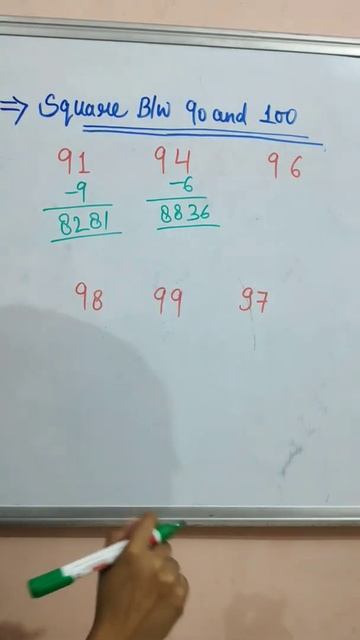 ⇒ Square B/w 90 and 100
91 94 96
-9 -6
8281 8836
98 99 97